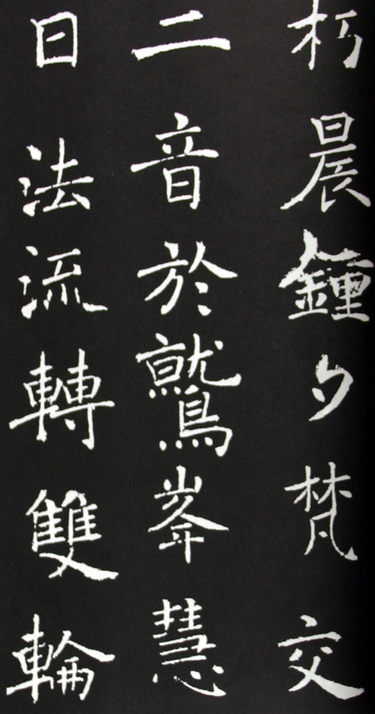 朽晨鍾夕梵交
二音於鷲峯慧
日法流轉雙輪